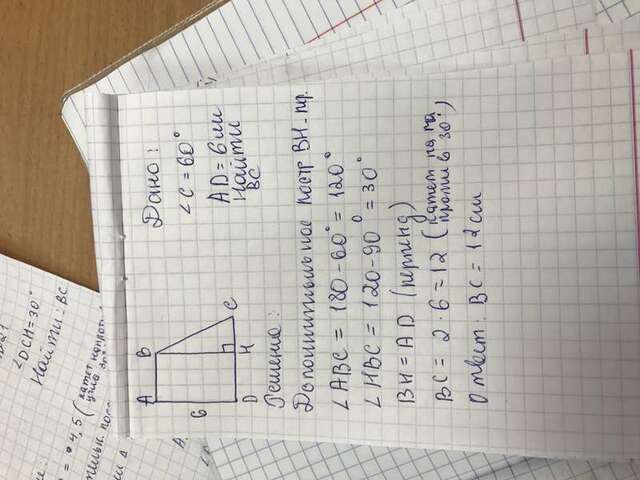 ∠DCH=30°
Найти: BC
= 4,5 (катет
A B
6
D H C
Дано:
∠C = 60°
AD = 6см
Найти
BC
Решение:
Дополнительное постр BH - пр.
∠ABC = 180 - 60° = 120°
∠HBC = 120 - 90° = 30°
BH = AD (перпенд)
BC = 2 · 6 = 12 (катет
против 30°)
Ответ: BC = 12 см